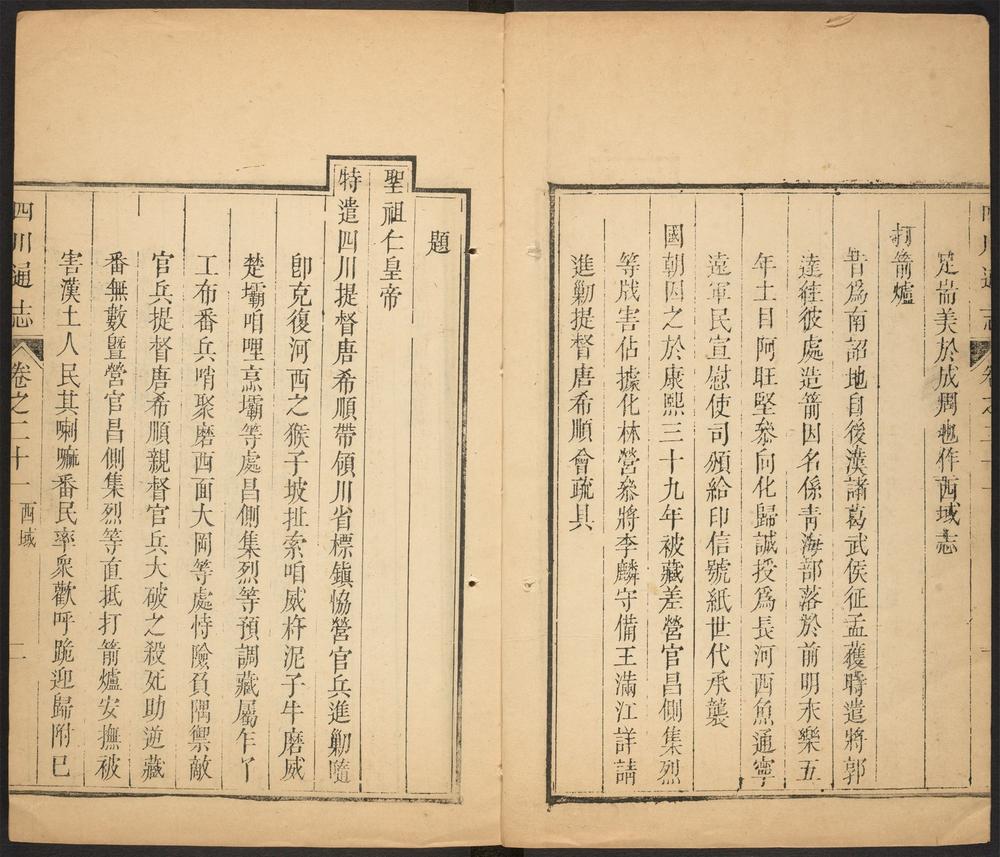 足耑美於成周也作西域志
打箭爐
昔爲南詔地自後漢諸葛武侯征孟獲時遣將郭
達往彼處造箭因名係青海部落於前明永樂五
年土目阿旺堅叅向化歸誠授爲長河西魚通寧
遠軍民宣慰使司頒給印信號紙世代承襲
國朝因之於康熙三十九年被藏差營官昌側集烈
等戕害佔據化林營叅將李麟守備王滿江詳請
進勦提督唐希順會疏具
題
聖祖仁皇帝
特遣四川提督唐希順帶領川省標鎮恊營官兵進勦隨
卽克復河西之猴子坡扯索咱威杵泥子牛磨威
楚壩咱哩烹壩等處昌側集烈等預調藏屬乍丫
工布番兵哨聚磨西面大岡等處恃險負隅禦敵
官兵提督唐希順親督官兵大破之殺死助逆藏
番無數曁營官昌側集烈等直抵打箭爐安撫被
害漢土人民其喇嘛番民率衆歡呼跪迎歸附已
四川通志
卷之二十一
西域